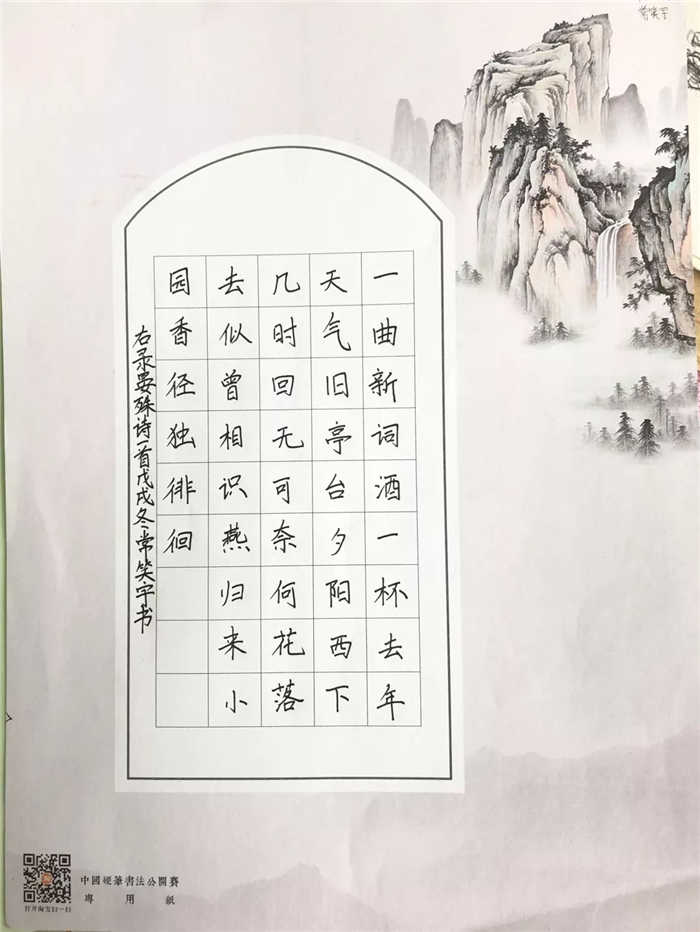 常笑宇
一曲新词酒一杯去年
天气旧亭台夕阳西下
几时回无可奈何花落
去似曾相识燕归来小
园香径独徘徊
右录晏殊诗一首戊戌冬常笑宇书
中國硬筆書法公開賽
專用紙
打开淘宝扫一扫